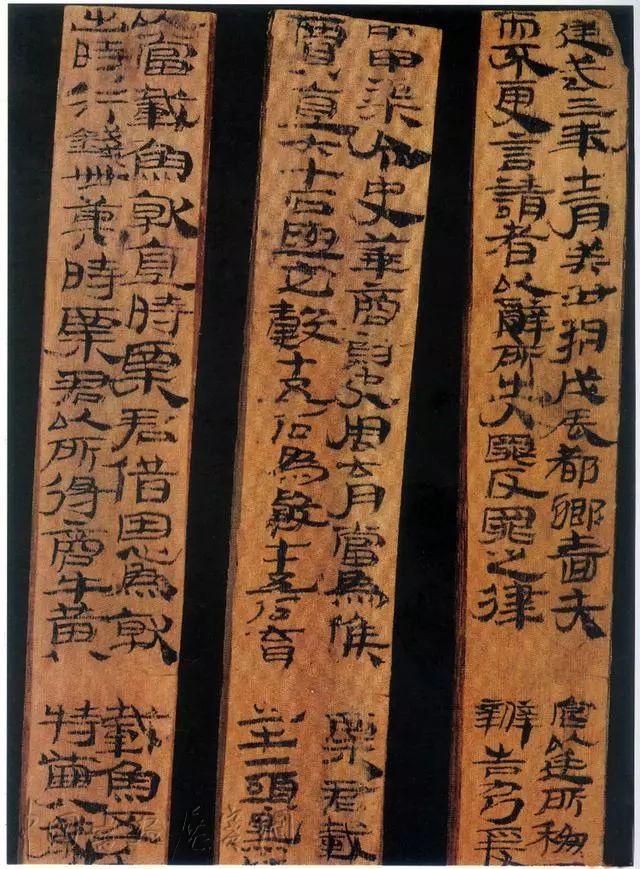 建武三年十二月癸丑朔戊辰都鄉嗇夫宮以廷所移
而不更言請者以辭所出入罪反罪之律辨告乃爰
甲渠令史華商尉史周育當為候粟君載
賈直六十石與它穀十五石為穀七十五石育出牛一頭黑
以當載魚就直時粟君借恩為就載魚五
時行錢卌萬時粟君以所得商牛黃特齒八歲